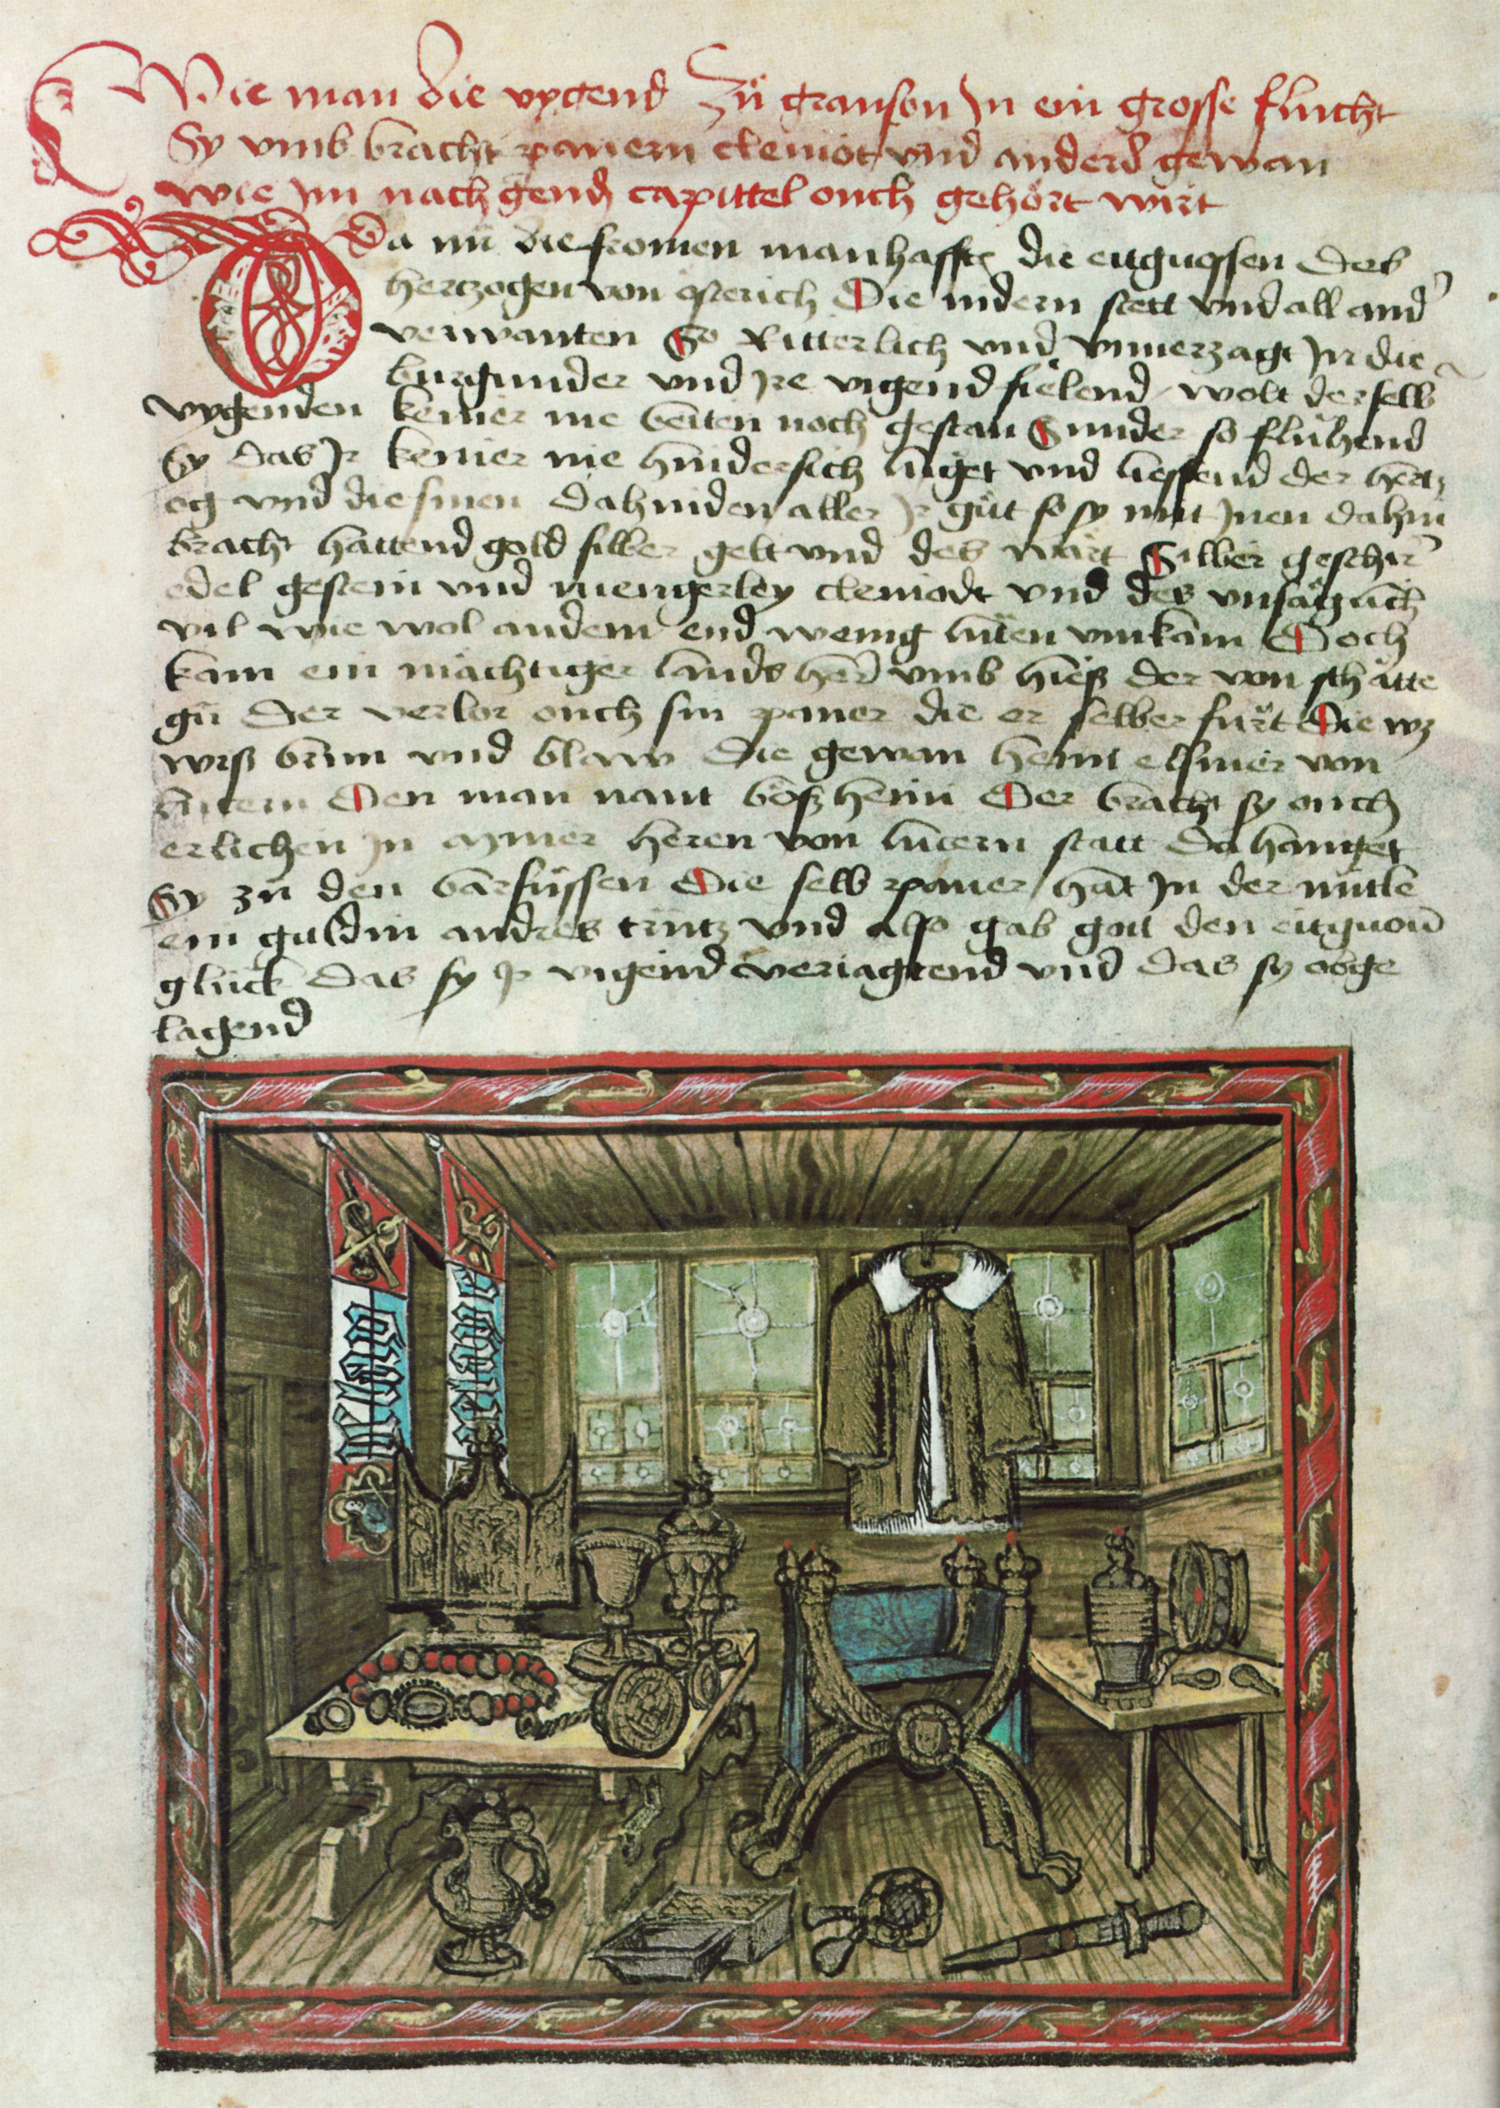 Wie man die vygend Zů granson Jn ein grosse flucht
Sy vmb bracht paneren cleinot vnd anderd gewan
wie Jm nach gend capittel ouch gehört wirt
Da nu die fromen manhafften die eitgnossen des
hertzogen von osterich Die nidern stett vnd all and
verwanten So Ritterlich vnd vnuerzagt Jn die
burgunder vnd Jre vigend fielend wolt der selb
vygenden keiner nie beiten noch gestan Sunder so fluhend
Sy das Jr keiner nie hindersich luget vnd liessend der hertz
og vnd die sinen dahinden aller Jr gůt so sy mit Jnen dahin
bracht hattend gold silber gelt vnd des wärt Silber geschir
edel gestein vnd mengerley cleinodt vnd des vnsäglich
vil wie wol an dem end wenig lüten vmkam Doch
kam ein mächtiger lands herr vmb hieß der von schätte
gü Der verlor ouch sin paner die er selber fůrt Die wz
wiß brun vnd blaw Die gewan heini elsiner von
lucern Den man nant böß heini Der bracht sy ouch
erlichen Jn miner heren von lucern statt Da hanget
Sy zů den barfůssen Die selb paner hat Jn der mitle
ein guldin andres crütz vnd also gab gott den eitgnon
glück das sy Jr vigend veriagtend vnd das sy obge
lagend